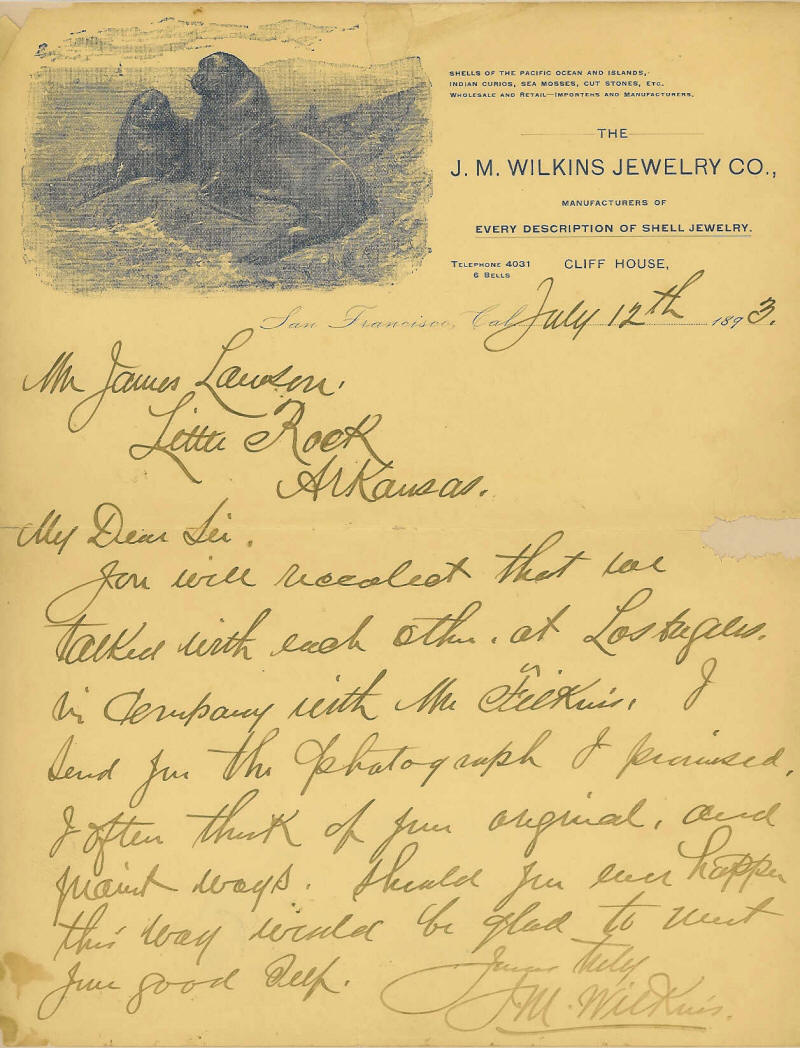 SHELLS OF THE PACIFIC OCEAN AND ISLANDS,
INDIAN CURIOS, SEA MOSSES, CUT STONES, ETC.
WHOLESALE AND RETAIL—IMPORTERS AND MANUFACTURERS.
THE
J. M. WILKINS JEWELRY CO.,
MANUFACTURERS OF
EVERY DESCRIPTION OF SHELL JEWELRY.
TELEPHONE 4031
6 BELLS
CLIFF HOUSE,
San Francisco, Cal July 12th 1893.
Mr James Lawson.
Little Rock
Arkansas.
My Dear Sir.
You will recolect that we
talked with each other. at Los Angeles.
in Company with Mr Filkins. I
send you the photograph I promised.
I often think of your original, and
quaint ways. Should you ever happen
this way would be glad to meet
your good self.
Yours truly
J.M. Wilkins.